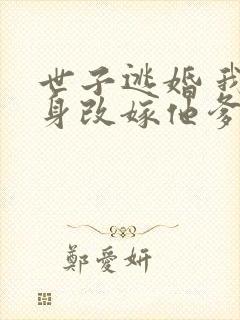 世子逃婚 我
身改嫁他爹
鄭愛妍